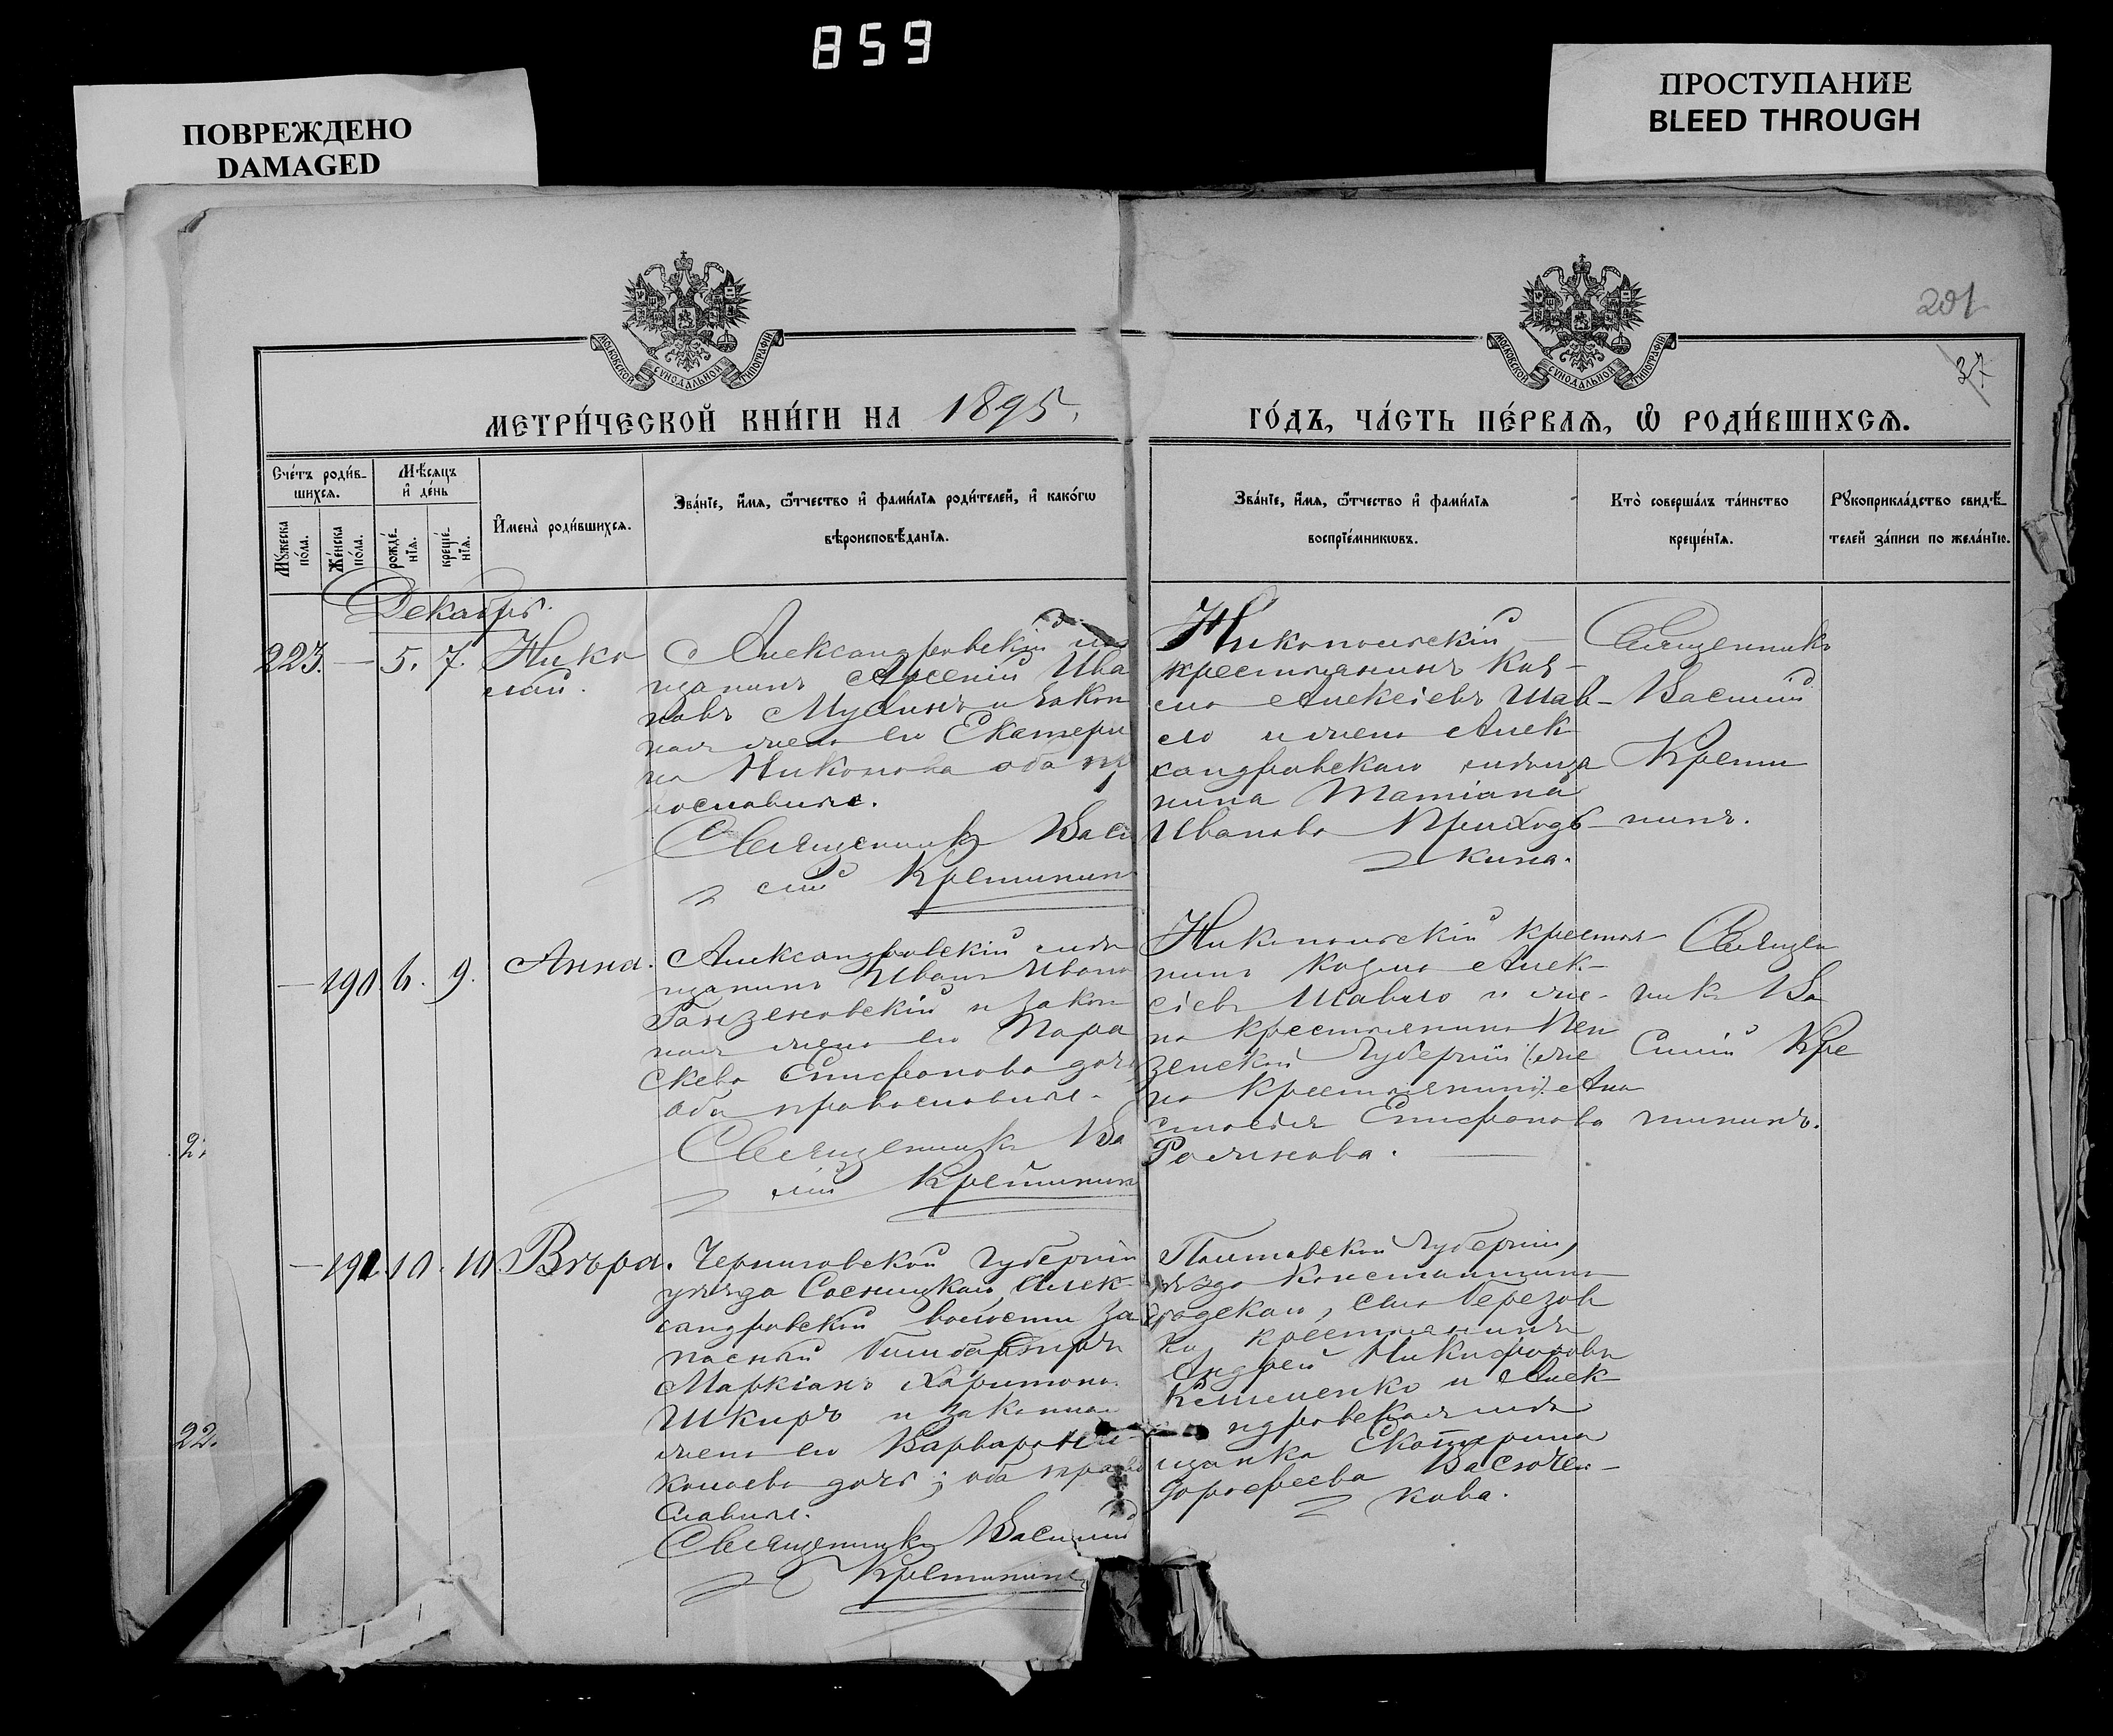 859
ПОВРЕЖДЕНО
DAMAGED
ПРОСТУПАНИЕ
BLEED THROUGH
201
37
МОСКОВСКОЙ СѴНОДАЛЬНОЙ ТИПОГРАФІИ
МОСКОВСКОЙ СѴНОДАЛЬНОЙ ТИПОГРАФІИ
МЕТРИ́ЧЕСКОЙ КНИ́ГИ НА 1895
ГО́ДЪ, ЧА́СТЬ ПЕ́РВАѦ, Ѡ҆ РОДИ́ВШИХСѦ.
Сче́тъ роди́в-
шихсѧ.
Мꙋжеска по́ла.
Же́нска по́ла.
Мѣ́сѧцъ
и҆ де́нь
рожде́-нїѧ.
креще́-нїѧ.
И҆мена̀ роди́вшихсѧ.
Зва́нїе, и҆́мѧ, ѻ҆́тчество и҆ фами́лїѧ роди́телей, и҆ како́гѡ
вѣроисповѣ́данїѧ.
Зва́нїе, и҆́мѧ, ѻ҆́тчество и҆ фами́лїѧ
воспрїе́мникѡвъ.
Кто̀ соверша́лъ та́инство
креще́нїѧ.
Рꙋкоприкла́дство свидѣ́-
телей за́писи по жела́нїю.
Декабрь.
223. — 5. 7. Нико
лай.
Александровскій мѣ
щанинъ Арсеній Ива
новъ Мусинъ и закон
ная жена его Екатери
на Никонова оба пр
вославные.
Священникъ Васи
лій Кретининъ
Никопольскій
крестьянинъ Коз-
ма Алексіевъ Шав-
ло и жена Алек
сандровскаго мѣща
нина Татіана
Иванова Приходь-
кина.
Священникъ
Василій
Крети
нинъ.
— 190. 6. 9. Анна.
Александровскій мѣ
щанинъ Иванъ Ивано
Ганзеновскій и закон
ная жена его Пара
скева Епифанова дочь
оба православные.
Священникъ Ва
лій Кретинин
Никопольскій крестья
нинъ Козма Алек-
сіевъ Шавло и же-
на крестьянина Пен
зенской губерніи (же
на крестьянина). Ана
стасія Епифанова
Священ
никъ Ва
силій Кре
тининъ.
— 191. 10. 10. Вѣра.
Черниговской губерніи
уѣзда Сосницкаго, Алек
сандровской волости за
пасный бомбардиръ
Маркіанъ Харитоно
Шкиръ и законная
жена его Варвара Ни
колаева дочь; оба право
славные.
Священникъ Василій
Кретининъ
Полтавской губерніи,
уѣзда Константино
градскаго, села Березов
ки крестьянинъ
Андрей Никифоровъ
и Алек
ндровская мѣ
щанка Екатерина
Дорофеева Васючен-
кова.
2.
22.